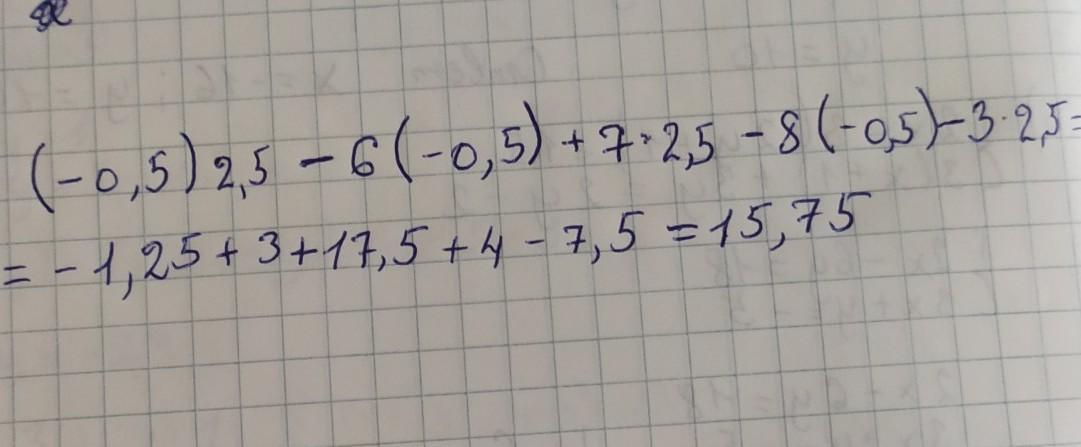 (-0,5)2,5 - 6(-0,5) + 7·2,5 - 8(-0,5) - 3·2,5=
= -1,25 + 3 + 17,5 + 4 - 7,5 = 15,75